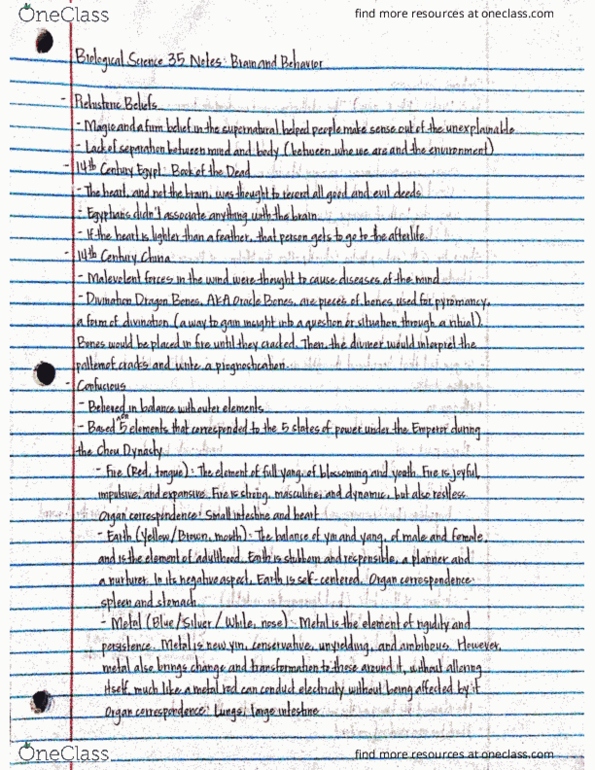 OneClass
find more resources at oneclass.com
Biological Science 35 Notes: Brain and Behavior
- Prehistoric Beliefs
- Magic and a firm belief in the supernatural helped people make sense out of the unexplainable
- Lack of separation between mind and body (between who we are and the environment)
- 14th Century Egypt: Book of the Dead
- The heart, and not the brain, was thought to record all good and evil deeds.
- Egyptians didn't associate anything with the brain.
- If the heart is lighter than a feather, that person gets to go to the afterlife.
- 14th Century China
- Malevolent forces in the wind were thought to cause diseases of the mind
- Divination Dragon Bones, AKA Oracle Bones, are pieces of bones used for pyromancy,
a form of divination (a way to gain insight into a question or situation through a ritual).
Bones would be placed in fire until they cracked. Then, the diviner would interpret the
pattern of cracks and write a prognostication.
- Confucious
- Believed in balance with outer elements
- Based on 5 elements that corresponded to the 5 states of power under the Emperor during
the Chou Dynasty
- Fire (Red, tongue): The element of full yang, of blossoming and youth. Fire is joyful,
impulsive, and expansive. Fire is strong, masculine, and dynamic, but also restless.
Organ correspondence: Small intestine and heart
- Earth (Yellow/Brown, mouth): The balance of yin and yang, of male and female,
and is the element of adulthood. Earth is stubborn and responsible, a planner and
a nurturer. In its negative aspect, Earth is self-centered. Organ correspondence:
spleen and stomach
- Metal (Blue/Silver/White, nose): Metal is the element of rigidity and
persistence. Metal is new yin, conservative, unyielding, and ambitious. However,
metal also brings change and transformation to those around it, without altering
itself, much like a metal rod can conduct electricity without being affected by it
Organ correspondence: Lungs, large intestine
OneClass
find more resources at oneclass.com